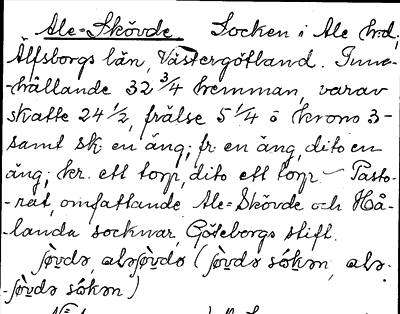 Ale=Skövde. Socken i Ale hrd,
Älfsborgs län, Västergötland. Inne-
-hållande 32 3/4 hemman, varav
skatte 24 1/2, frälse 5 1/4 o krono 3-
samt sk. en äng; fr. en äng, dito en
äng; kr. ett torp, dito ett torp.- Pasto-
-rat, omfattande Ale=Skövde och Hå-
-landa socknar, Göteborgs stift.